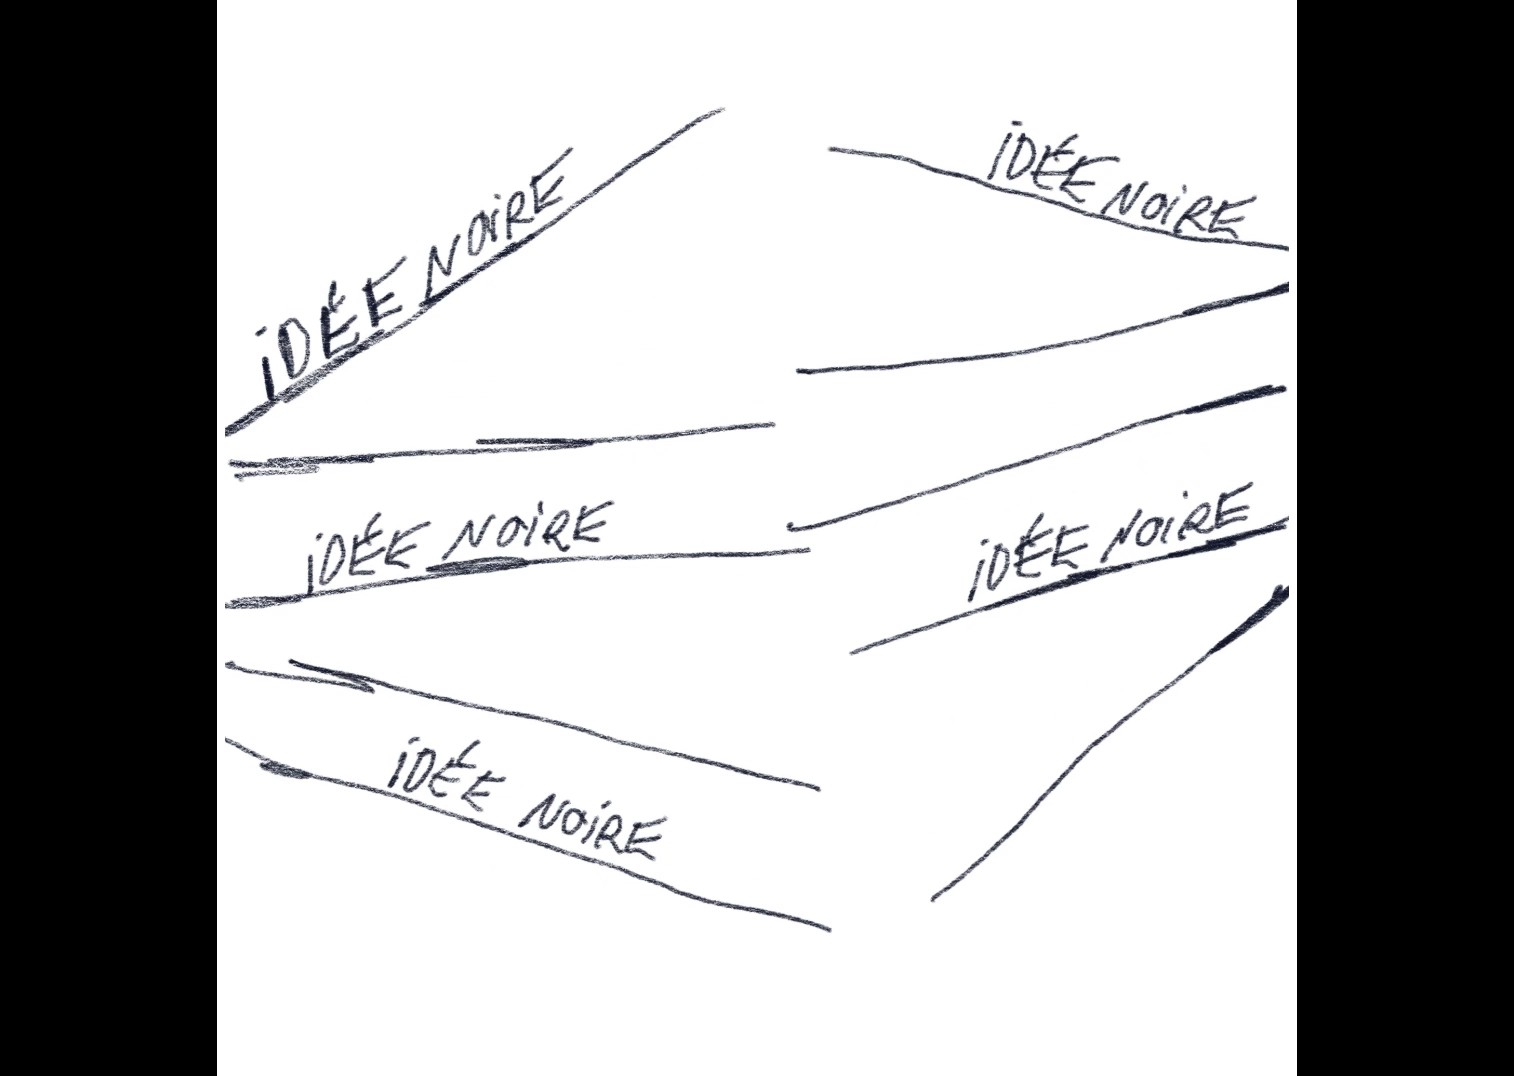 iDÉE NOiRE
iDÉE NOiRE
iDÉE NOiRE
iDÉE NOiRE
iDÉE NOiRE